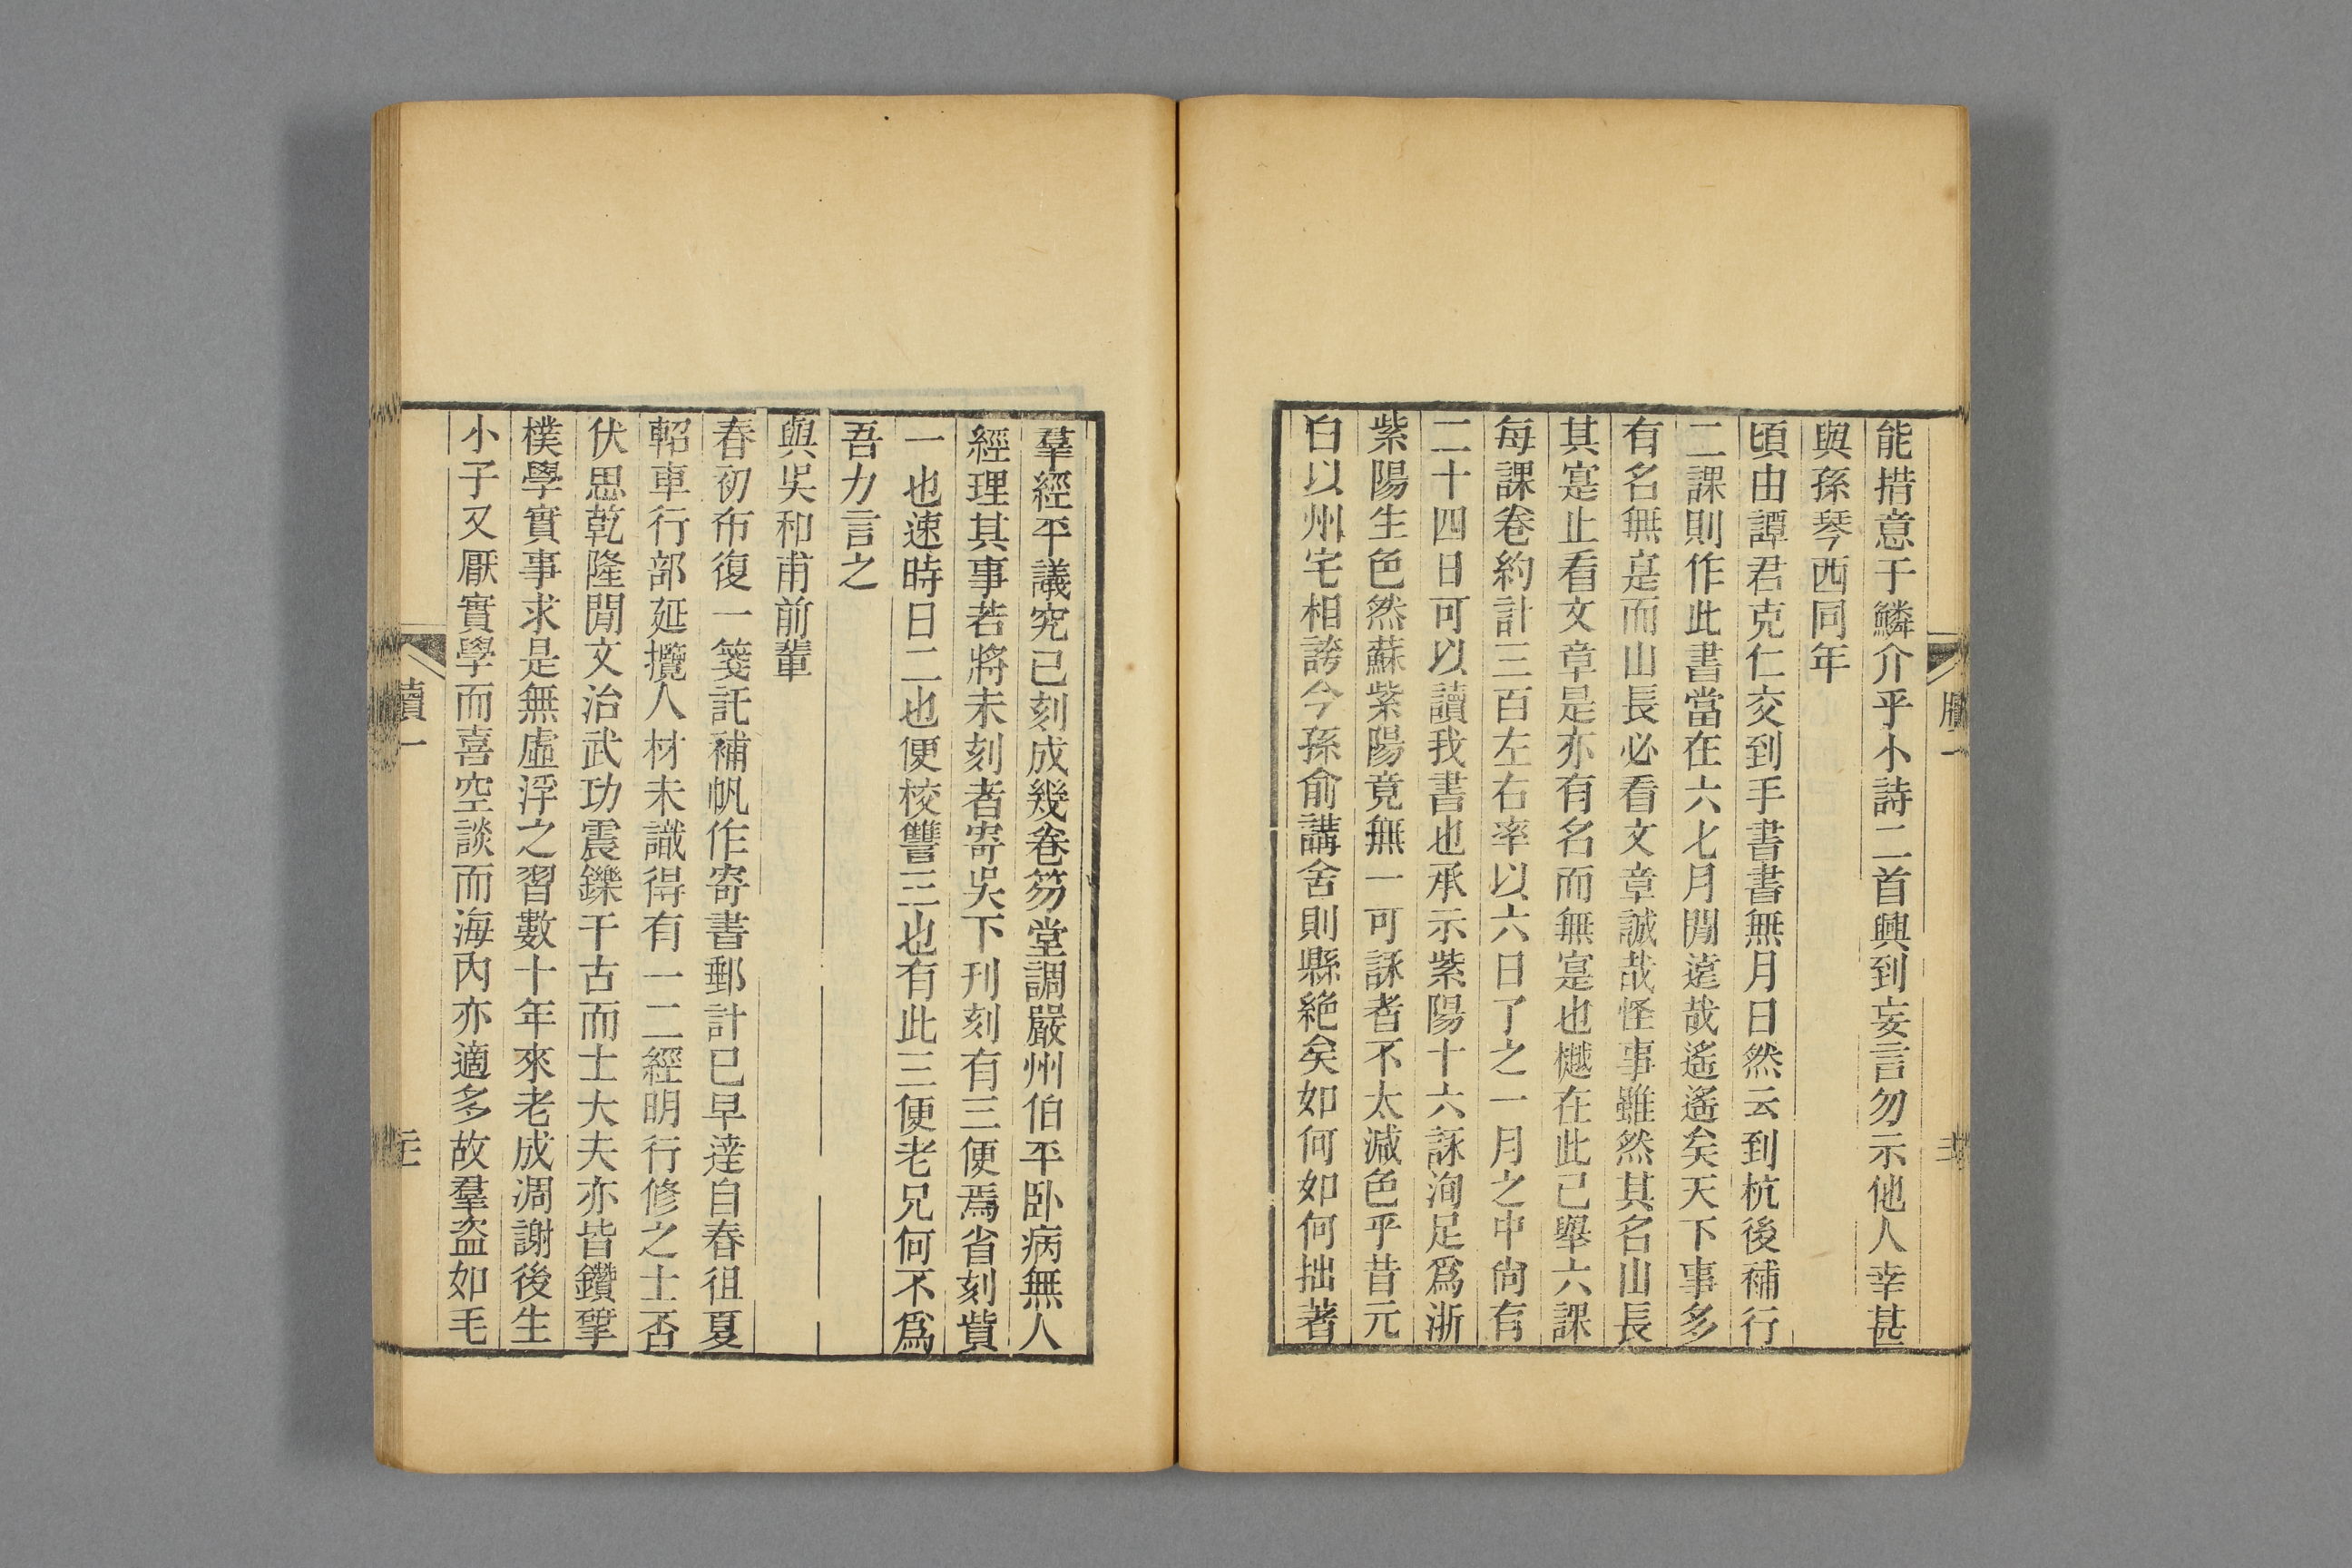 能措意于鱗介乎小詩二首興到妄言勿示他人幸甚
與孫琴西同年
頃由譚君克仁交到手書書無月日然云到杭後補行
二課則作此書當在六七月閒遠哉遙遙矣天下事多
有名無寔而山長必看文章誠哉怪事雖然其名山長
其寔止看文章是亦有名而無寔也樾在此已舉六課
每課卷約計三百左右率以六日了之一月之中尙有
二十四日可以讀我書也承示紫陽十六詠洵足爲浙
紫陽生色然蘇紫陽竟無一可詠者不太減色乎昔元
白以州宅相誇今孫俞講舍則縣絶矣如何如何拙著
羣經平議究已刻成幾卷笏堂調嚴州伯平卧病無人
經理其事若將未刻者寄吳下刊刻有三便焉省刻貲
一也速時日二也便校讐三也有此三便老兄何不爲
吾力言之
與吳和甫前輩
春初布復一箋託補帆作寄書郵計已早達自春徂夏
軺車行部延攬人材未識得有一二經明行修之士否
伏思乾隆閒文治武功震鑠千古而士大夫亦皆鑽揅
樸學實事求是無虛浮之習數十年來老成凋謝後生
小子又厭實學而喜空談而海內亦適多故羣盜如毛
牘一